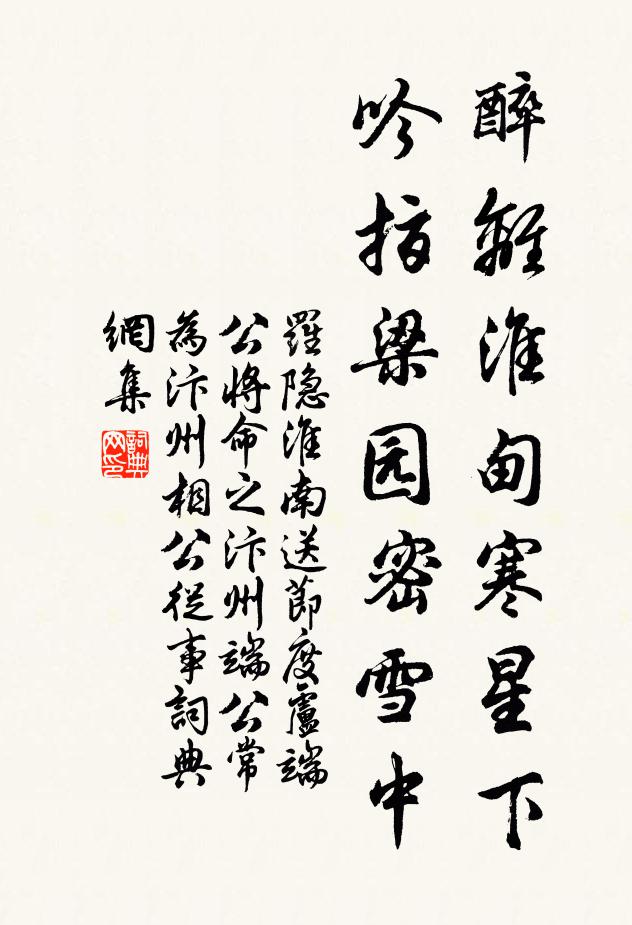 醉離淮甸寒星下
吟指梁园密雪中
羅隐淮南送節度盧端
公將命之汴州端公常
為汴州相公從事詞典
網集
詞典网印